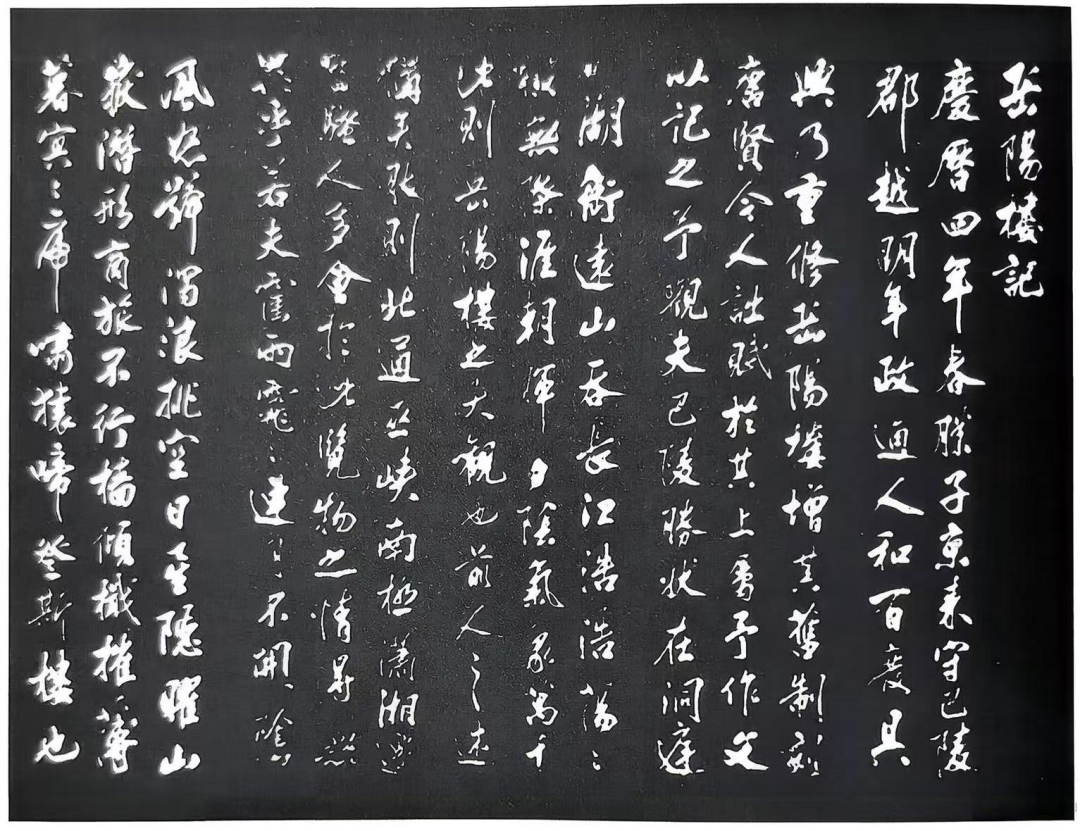 岳陽樓記
慶曆四年春滕子京来守巴陵
郡越明年政通人和百廢具
興乃重修岳陽樓增其舊制刻
唐賢今人詩賦於其上屬予作文
以記之予觀夫巴陵勝狀在洞庭
一湖銜遠山吞長江浩浩蕩〻
橫無際涯朝暉夕陰氣象萬千
此則岳陽樓之大觀也前人之述
備矣然則北通巫峽南極瀟湘遷
客騷人多會於此覽物之情得無
異乎若夫霪雨霏〻連月不開陰
風怒號濁浪排空日星隱曜山
嶽潛形商旅不行檣傾檝摧薄
暮冥〻虎嘯猿啼登斯樓也